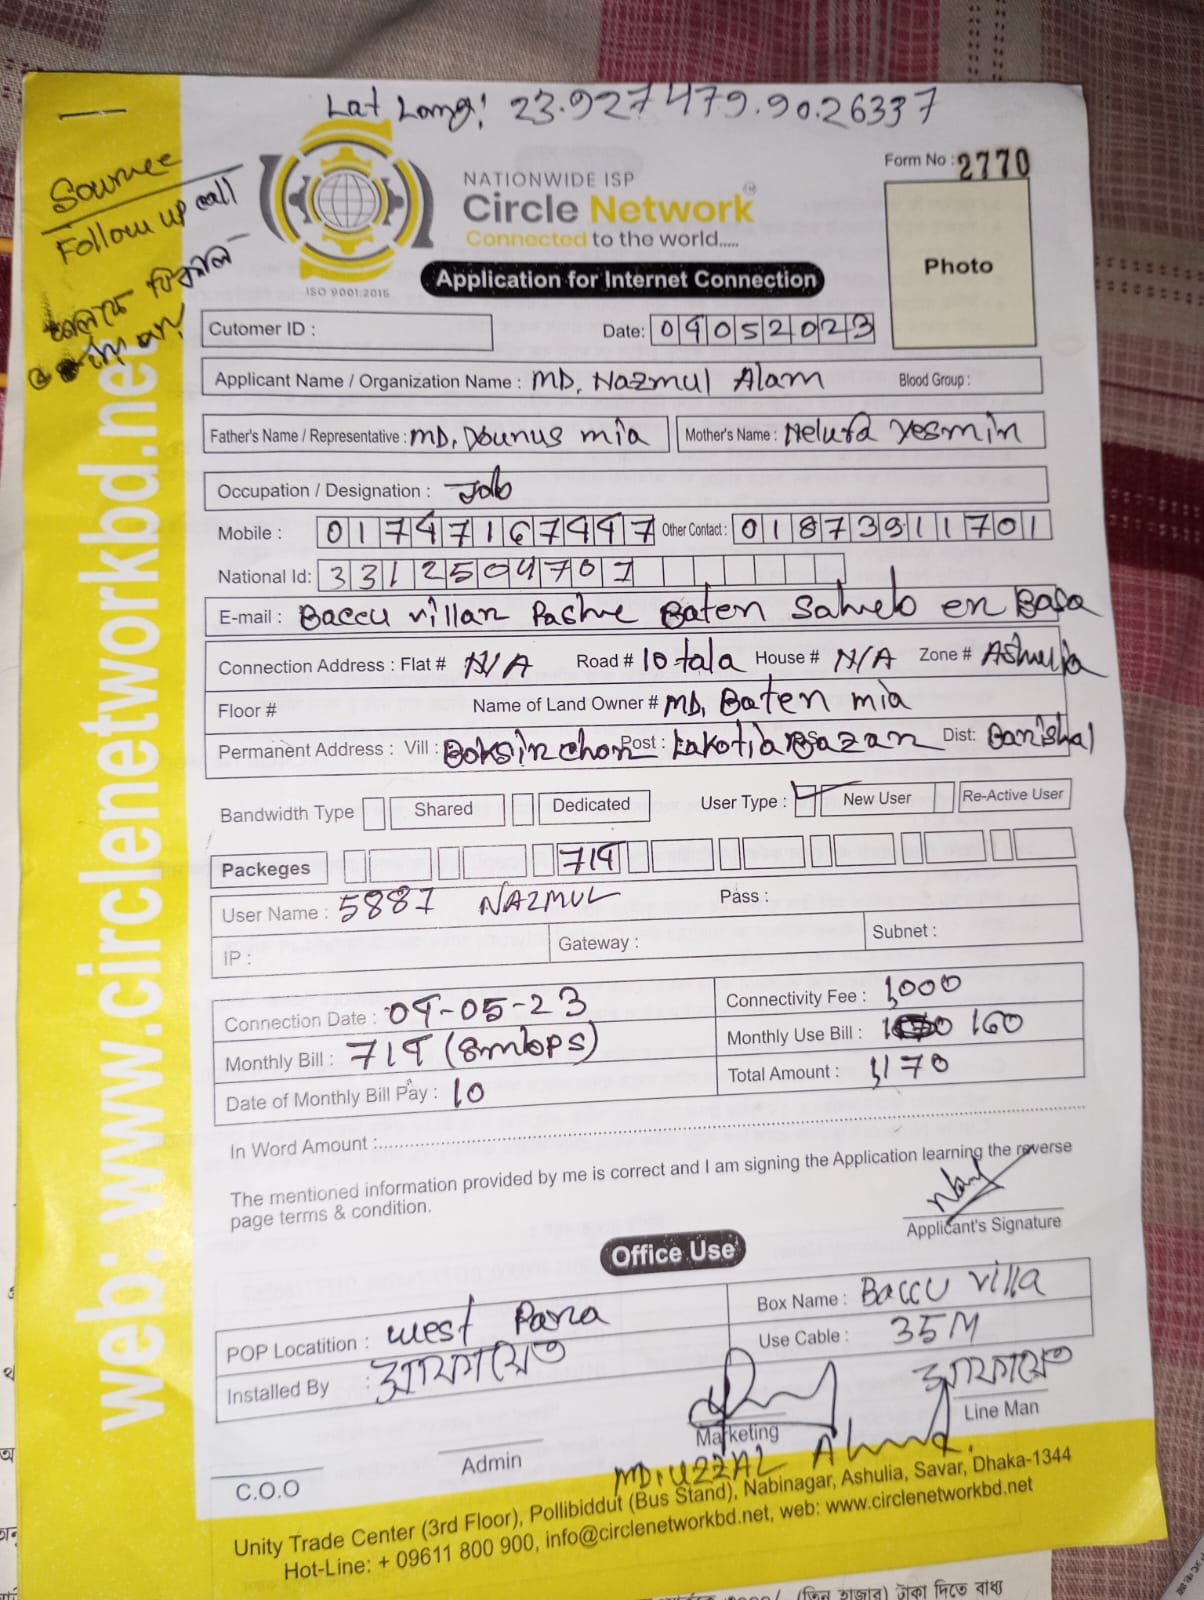 Lat Long! 23.927479.90.26337
Source
Follow up call
NATIONWIDE ISP
Circle Network
Connected to the world.....
ISO 9001:2015
Form No : 2770
Photo
Application for Internet Connection
Cutomer ID :
Date: 09052023
Applicant Name / Organization Name : MD, Nazmul Alam Blood Group :
Father's Name / Representative : MD, Younus mia Mother's Name : Nelufa Yesmin
Occupation / Designation : Job
Mobile : 01747167997 Other Contact : 01873911701
National Id: 3312504707
E-mail : Baccu villar Pashe Baten Saheb er Basa
Connection Address : Flat # N/A Road # 10 tala House # N/A Zone # Ashulia
Floor # Name of Land Owner # MD, Baten mia
Permanent Address : Vill : Boksirchor Post : Lakotia Bazar Dist: Barishal
Bandwidth Type Shared Dedicated User Type : New User Re-Active User
Packeges 719
User Name : 5887 NAZMUL Pass :
IP : Gateway : Subnet :
Connection Date : 09-05-23 Connectivity Fee : 1,000
Monthly Bill : 719 (8mbps) Monthly Use Bill : 160
Date of Monthly Bill Pay : 10 Total Amount : 1,170
In Word Amount :
The mentioned information provided by me is correct and I am signing the Application learning the reverse
page terms & condition.
Applicant's Signature
Office Use
POP Locatition : west Para Box Name : Baccu villa
Installed By : Use Cable : 35M
Marketing
Line Man
Admin
MD. UZZAL Ahmed.
C.O.O
Unity Trade Center (3rd Floor), Pollibiddut (Bus Stand), Nabinagar, Ashulia, Savar, Dhaka-1344
Hot-Line: + 09611 800 900, info@circlenetworkbd.net, web: www.circlenetworkbd.net
web: www.circlenetworkbd.net
(তিন হাজার) টাকা দিতে বাধ্য